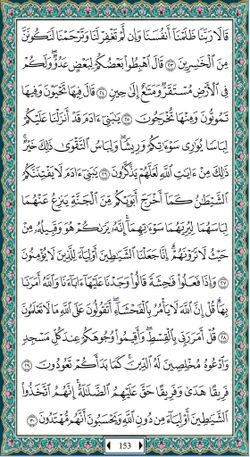 قَالَا رَبَّنَا ظَلَمْنَا أَنفُسَنَا وَإِن لَّمْ تَغْفِرْ لَنَا وَتَرْحَمْنَا لَنَكُونَنَّ
مِنَ الْخَٰسِرِينَ ٢٣ قَالَ اهْبِطُوا۟ بَعْضُكُمْ لِبَعْضٍ عَدُوٌّ وَلَكُمْ
فِي الْأَرْضِ مُسْتَقَرٌّ وَمَتَٰعٌ إِلَىٰ حِينٍ ٢٤ قَالَ فِيهَا تَحْيَوْنَ وَفِيهَا
تَمُوتُونَ وَمِنْهَا تُخْرَجُونَ ٢٥ يَٰبَنِىٓ ءَادَمَ قَدْ أَنزَلْنَا عَلَيْكُمْ
لِبَاسًا يُوَٰرِى سَوْءَٰتِكُمْ وَرِيشًا ۖ وَلِبَاسُ التَّقْوَىٰ ذَٰلِكَ خَيْرٌ ۚ
ذَٰلِكَ مِنْ ءَايَٰتِ اللَّهِ لَعَلَّهُمْ يَذَّكَّرُونَ ٢٦ يَٰبَنِىٓ ءَادَمَ لَا يَفْتِنَنَّكُمُ
الشَّيْطَٰنُ كَمَآ أَخْرَجَ أَبَوَيْكُم مِّنَ الْجَنَّةِ يَنزِعُ عَنْهُمَا
لِبَاسَهُمَا لِيُرِيَهُمَا سَوْءَٰتِهِمَآ ۗ إِنَّهُۥ يَرَىٰكُمْ هُوَ وَقَبِيلُهُۥ مِنْ
حَيْثُ لَا تَرَوْنَهُمْ ۗ إِنَّا جَعَلْنَا الشَّيَٰطِينَ أَوْلِيَآءَ لِلَّذِينَ لَا يُؤْمِنُونَ
٢٧ وَإِذَا فَعَلُوا۟ فَٰحِشَةً قَالُوا۟ وَجَدْنَا عَلَيْهَآ ءَابَآءَنَا وَاللَّهُ أَمَرَنَا
بِهَا ۗ قُلْ إِنَّ اللَّهَ لَا يَأْمُرُ بِالْفَحْشَآءِ ۖ أَتَقُولُونَ عَلَى اللَّهِ مَا لَا تَعْلَمُونَ
٢٨ قُلْ أَمَرَ رَبِّى بِالْقِسْطِ ۖ وَأَقِيمُوا۟ وُجُوهَكُمْ عِندَ كُلِّ مَسْجِدٍ
وَادْعُوهُ مُخْلِصِينَ لَهُ الدِّينَ ۚ كَمَا بَدَأَكُمْ تَعُودُونَ ٢٩
فَرِيقًا هَدَىٰ وَفَرِيقًا حَقَّ عَلَيْهِمُ الضَّلَٰلَةُ ۗ إِنَّهُمُ اتَّخَذُوا۟
الشَّيَٰطِينَ أَوْلِيَآءَ مِن دُونِ اللَّهِ وَيَحْسَبُونَ أَنَّهُم مُّهْتَدُونَ ٣٠
153